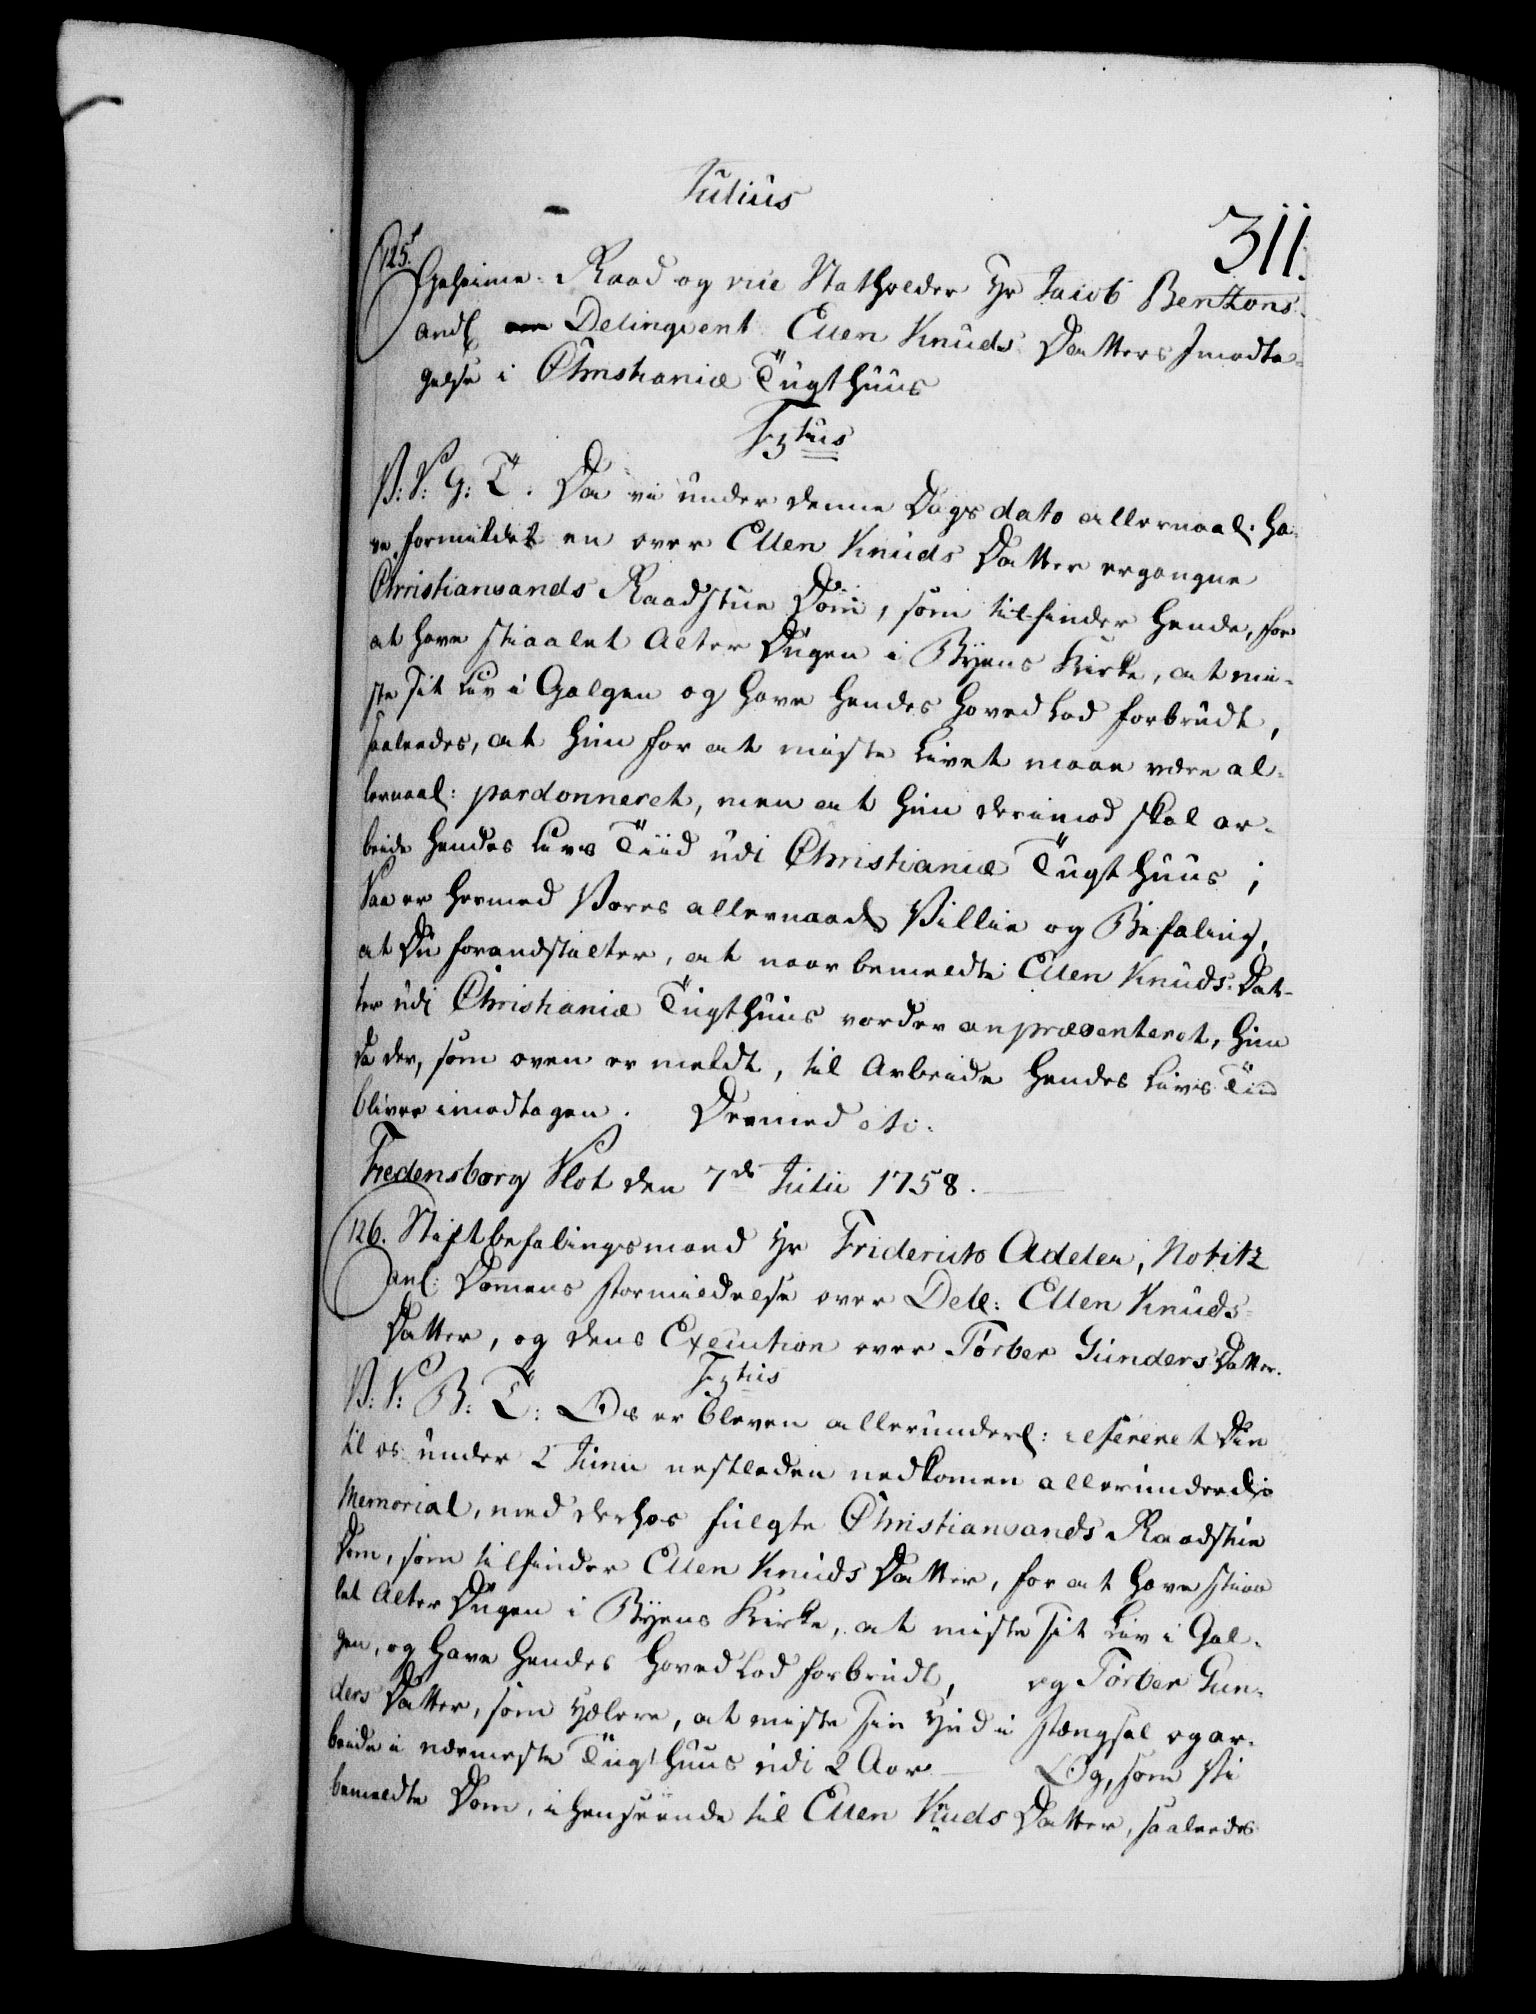 Julius
311.
125. Geheime-Raad og vice Statholder Hr Jacob Bentzons
andl Delinqvent Ellen Knuds Datters Imodta-
gelse i Christianiæ Tugthuus
V: S: G: T: Da vi under denne Dags dato allernaad: ha-
ve formildet en over Ellen Knuds Datter ergangne
Christiansands Raadstue Dom, som tilfinder hende, for
at have stiaalet Alter Dugen i Byens Kirke, at mi-
ste sit Liv i Galgen og have hendes Hoved Lod forbrudt,
saaledes, at hun for at miste Livet maae være al-
lernaad: pardonneret, men at hun derimod skal ar-
beide hendes Livs Tiid udi Christianiæ Tugthuus;
Saa er hermed Vores allernaads Villie og Befaling,
at Du foranstalter, at naar bemeldte Ellen Knuds Dat-
ter udi Christianiæ Tugthuus vorder anpræsenteret, hun
da der, som oven er meldt, til Arbeide hendes Livs Tiid
bliver imodtagen. Dermed etc:
Fredensborg Slot den 7de Julii 1758.
126. Stiftbefalingsmand Hr Friderich Adeler, Notitz
anl: Domens Formildelse over Del: Ellen Knuds
Datter, og dens Execution over Torber Gunders Datter.
V: S: B: T: Os er bleven allerunderd: refereret Din
til os under 2 Junii nestleden nedkomen allerunderds
Memorial, med derhos fulgte Christiansands Raadstue
Dom, som tilfinder Ellen Knuds Datter, for at have stiaa
let Alter Dugen i Byens Kirke, at miste sit Liv i Gal-
gen, og have hendes Hoved Lod forbrudt, og Torber Gun-
ders Datter, som Hælere, at miste sin Hud i Fængsel og ar-
beide i nærmeste Tugthuus udi 2 Aar – Og, som Vi
bemeldte Dom, i henseende til Ellen Knuds Datter, saaledes